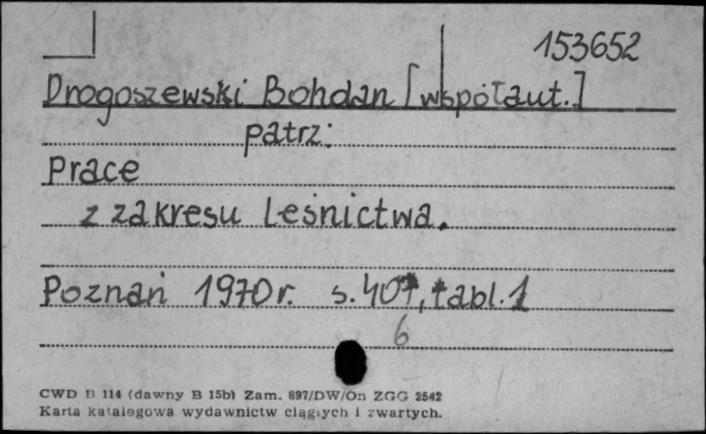 153652
Drogoszewski Bohdan [współaut.]
patrz:
Prace
z zakresu leśnictwa.
Poznań 1970r. s. 407, tabl. 1
6
CWD B 114 (dawny B 15b) Zam. 897/DW/On ZGG 2542
Karta katalogowa wydawnictw ciągłych i zwartych.